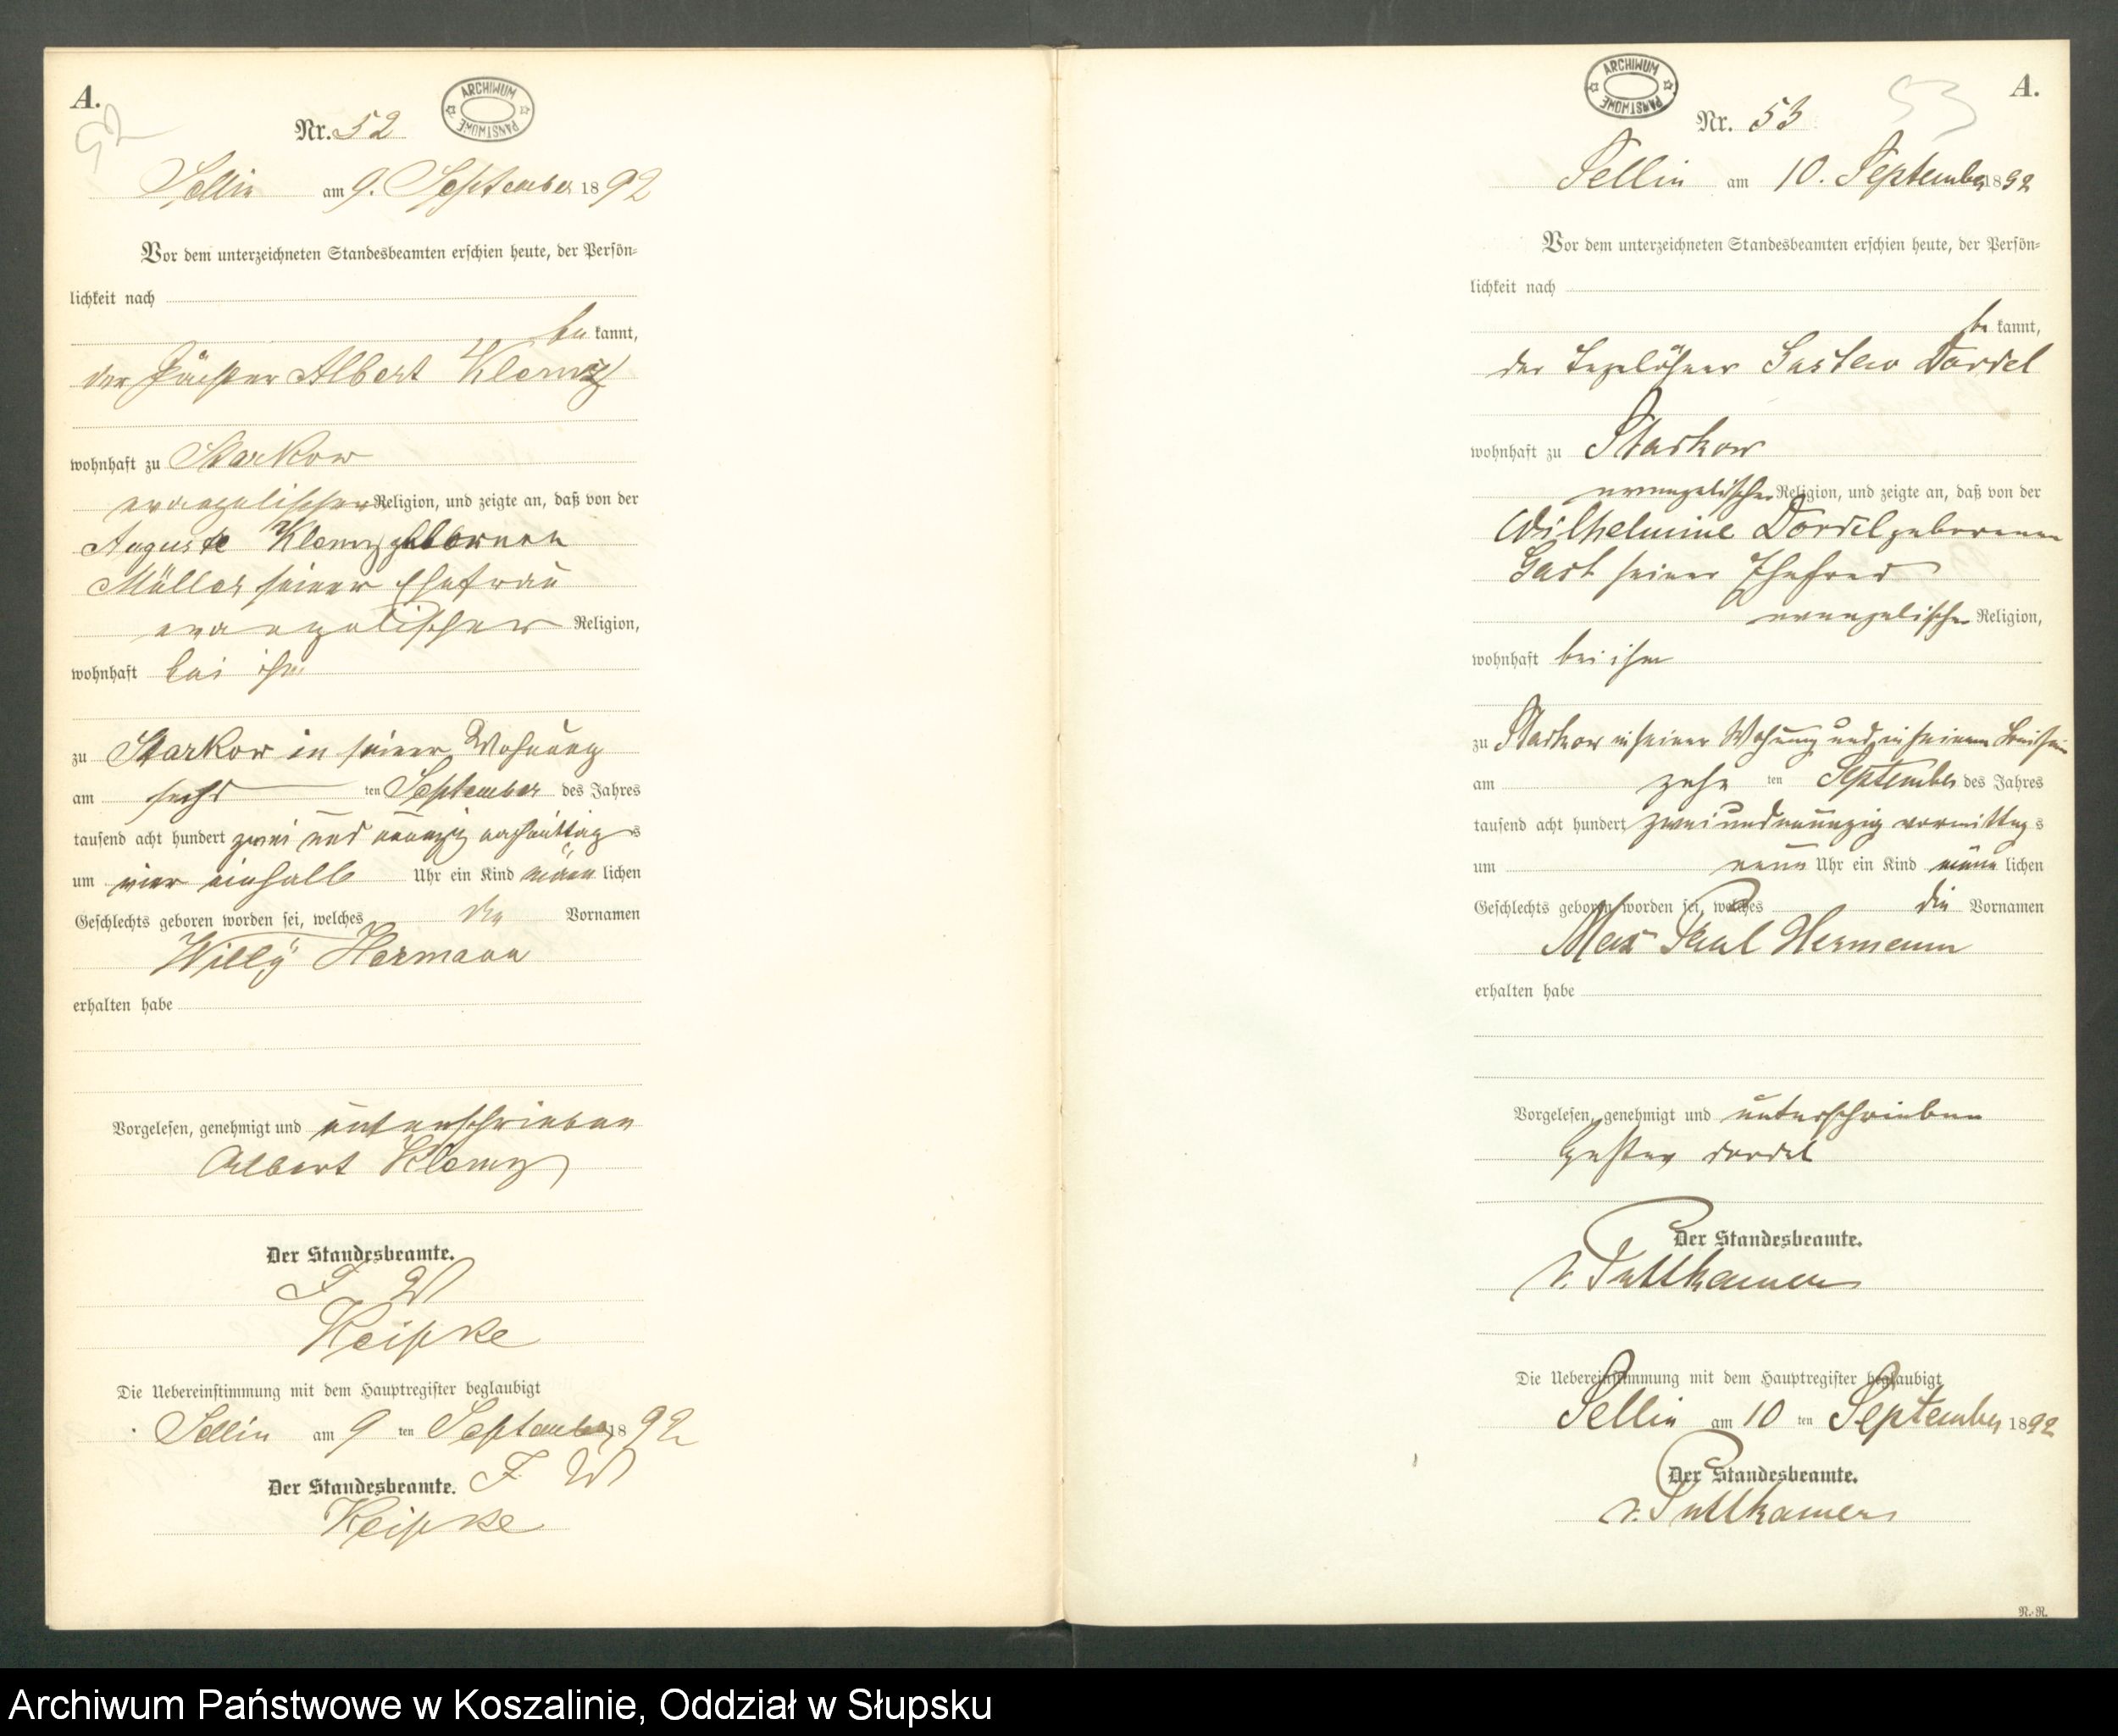 A.
52
Nr. 52
ARCHIWUM PAŃSTWOWE
Sellin am 9. September 1892
Vor dem unterzeichneten Standesbeamten erschien heute, der Persön-
lichkeit nach
be kannt,
der Pächter Albert Klemz
wohnhaft zu Starkow
evangelischer Religion, und zeigte an, daß von der
Auguste Klemz geborenen
Müller seiner Ehefrau
evangelischer Religion,
wohnhaft bei ihm
zu Starkow in seiner Wohnung
am sechs ten September des Jahres
tausend acht hundert zwei und neunzig nachmittag s
um vier einhalb Uhr ein Kind männ lichen
Geschlechts geboren worden sei, welches die Vornamen
Willy Hermann
erhalten habe
Vorgelesen, genehmigt und unterschrieben
Albert Klemz
Der Standesbeamte.
F W
Keipke
Die Uebereinstimmung mit dem Hauptregister beglaubigt
Sellin am 9 ten September 1892
Der Standesbeamte. F. W
Keipke
A.
53
ARCHIWUM PAŃSTWOWE
Nr. 53
Sellin am 10. September 1892
Vor dem unterzeichneten Standesbeamten erschien heute, der Persön-
lichkeit nach
be kannt,
der Tagelöhner Gustav Dordel
wohnhaft zu Starkow
evangelischer Religion, und zeigte an, daß von der
Wilhelmine Dordel geborenen
Gast seiner Ehefrau
evangelischer Religion,
wohnhaft bei ihm
zu Starkow in seiner Wohnung und in seinem Beisein
am zehn ten September des Jahres
tausend acht hundert zwei und neunzig vormittag s
um neun Uhr ein Kind männ lichen
Geschlechts geboren worden sei, welches die Vornamen
Max Paul Hermann
erhalten habe
Vorgelesen, genehmigt und unterschrieben
Gustav Dordel
Der Standesbeamte.
v. Puttkamer
Die Uebereinstimmung mit dem Hauptregister beglaubigt
Sellin am 10 ten September 1892
Der Standesbeamte.
v. Puttkamer
R.-R.
Archiwum Państwowe w Koszalinie, Oddział w Słupsku